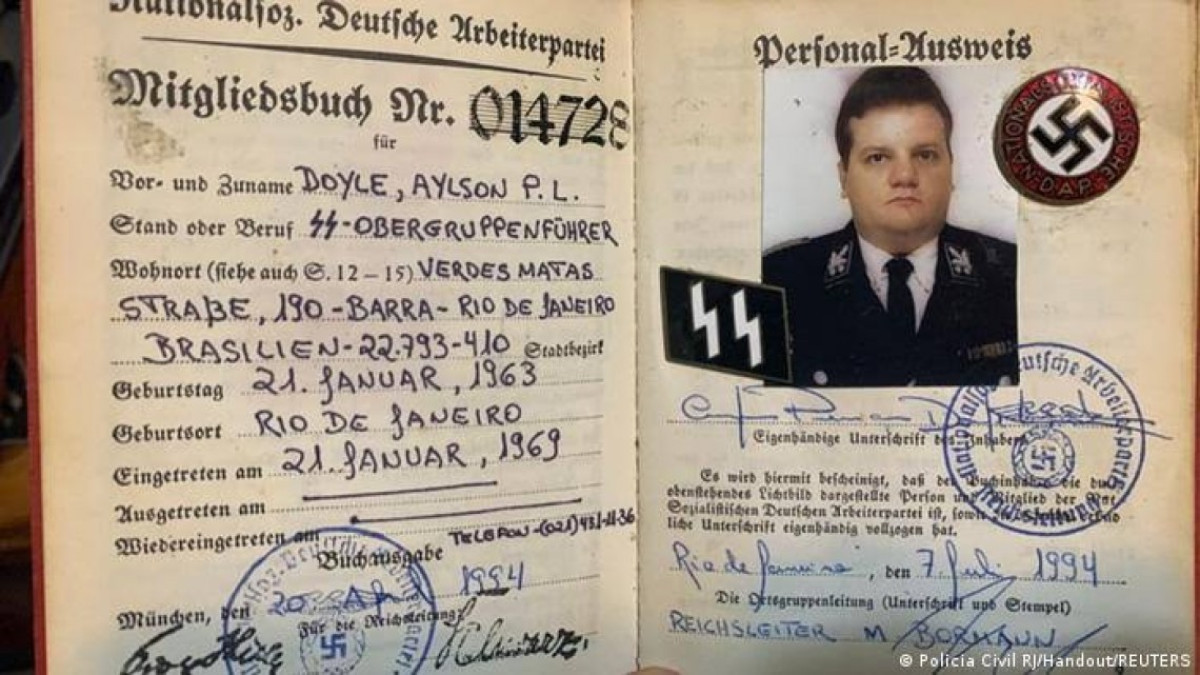 Nationalsoz. Deutsche Arbeiterpartei
Mitgliedsbuch Nr. 014728
für
Vor- und Zuname DOYLE, AYLSON P. L.
Stand oder Beruf SS-OBERGRUPPENFÜHRER
Wohnort (siehe auch S. 12 – 15) VERDES MATAS
STRAßE, 190 - BARRA - RIO DE JANEIRO
BRASILIEN - 22.793-410 Stadtbezirk
Geburtstag 21. JANUAR, 1963
Geburtsort RIO DE JANEIRO
Eingetreten am 21. JANUAR, 1969
Ausgetreten am
Wiedereingetreten am TELEFON-(021)
Buchausgabe
München, den 20 1994
Für die Reichsleitung:
Personal=Ausweis
NATIONALSOZIALISTISCHE
D.A.P.
SS
Eigenhändige Unterschrift des Inhabers
Es wird hiermit bescheinigt, daß der Buchinhaber die
obenstehendes Lichtbild dargestellte Person und Mitglied der Nat.
Sozialistischen Deutschen Arbeiterpartei ist, sowie
liche Unterschrift eigenhändig vollzogen hat.
Rio de Janeiro, den 7. Juli 1994
Die Ortsgruppenleitung (Unterschrift und Stempel)
REICHSLEITER M BORMANN
© Policia Civil RJ/Handout/REUTERS